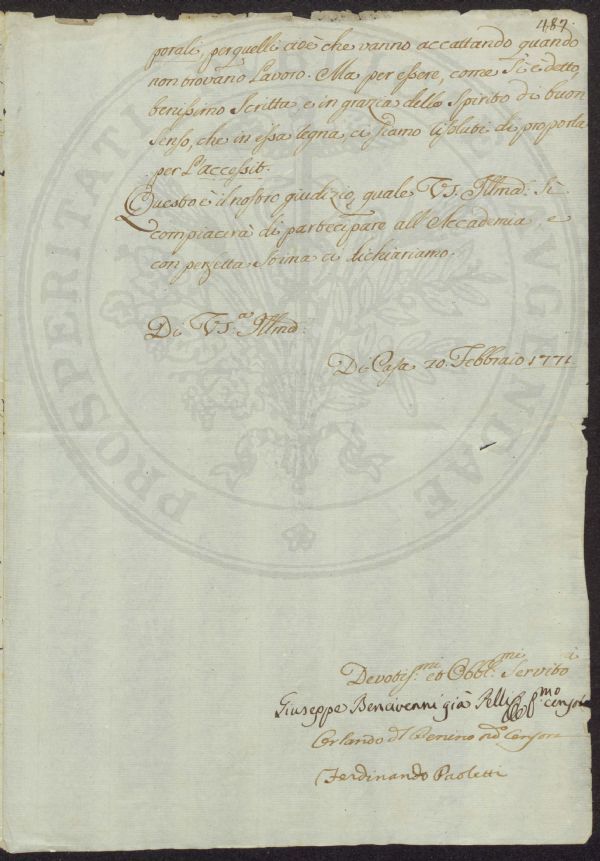 487.
porali, per quelli cioè che vanno accattando quando
non trovano Lavoro. Ma per essere, come si è detto,
benissimo scritta, e in grazia dello spirito di buon
senso, che in essa regna, ci siamo risoluti di proporla
per L'accessit.
Questo è il nostro giudizio, quale VS. Illma: si
compiacerà di partecipare all'Accademia, e
con perfetta stima ci dichiariamo.
Di VS.a Illma:
Di Casa 20. Febbraio 1771
Devotiss.mi et Obbl.mi Servitori
Giuseppe Bencivenni già Pelli p.mo censore
Orlando del Benino 2do Censore
Ferdinando Paoletti
PROSPERITATI AUGENDAE